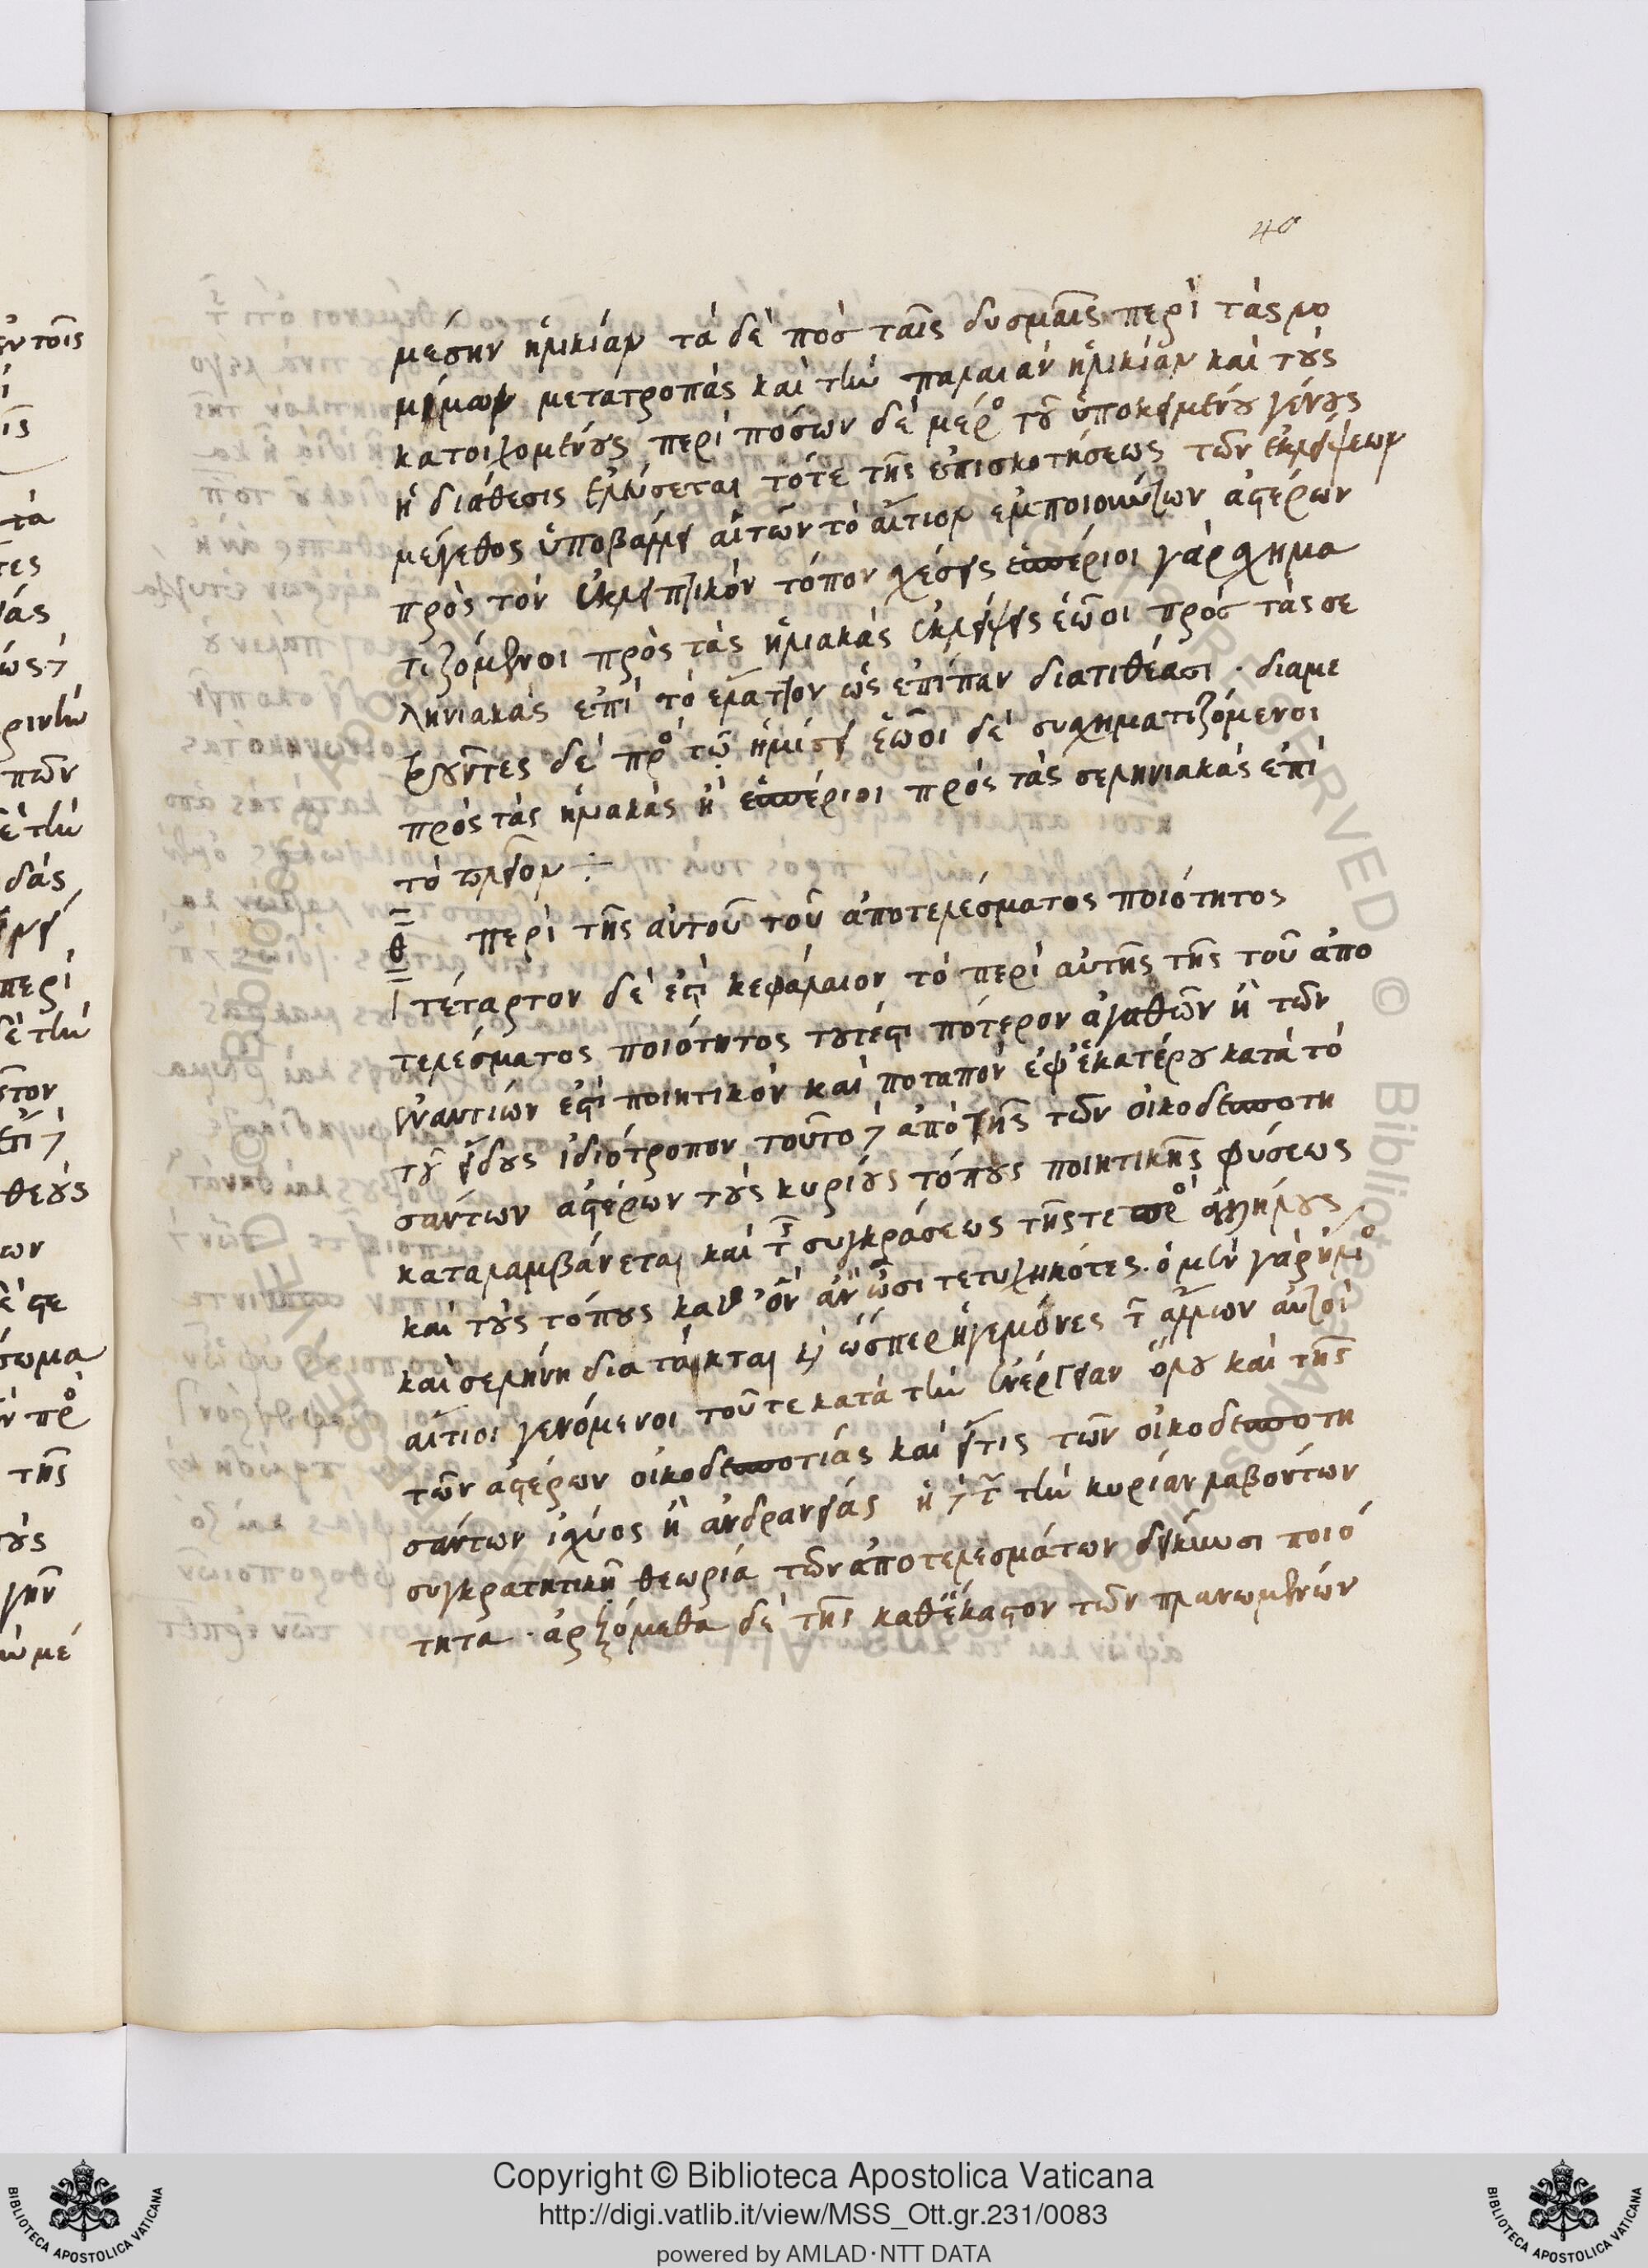 40
μέσην ἡλικίαν τὰ δὲ πρὸς ταῖς δυσμαῖς περὶ τὰς νο
μίμων μετατροπὰς καὶ τὴν παλαιὰν ἡλικίαν καὶ τοὺς
κατοιχομένους περὶ πόσων δὲ μέρο τοῦ ὑποκειμένου γένους
ἡ διάθεσις ἐλεύσεται τότε τῆς ἐπισκοτήσεως τῶν ἐκλείψεων
μέγεθος ὑποβάλλει αἱ τῶν τὸ αἴτιον ἐμποιούντων ἀστέρων
πρὸς τὸν ἐκλειπτικὸν τόπον σχέσεις ἑσπέριοι γὰρ σχημα
τιζόμενοι πρὸς τὰς ἡλιακὰς ἐκλείψεις ἑῶοι πρὸς τὰς σε
ληνιακὰς ἐπὶ τὸ ἔλαττον ὡς ἐπίπαν διατιθέασι · διαμε
τροῦντες δὲ πρὸ τῷ ἡμίσει ἑῶοι δὲ συσχηματιζόμενοι
πρὸς τὰς ἡλιακὰς ἢ ἑσπέριοι πρὸς τὰς σεληνιακὰς ἐπὶ
τὸ πλεῖον ÷
θ περὶ τῆς αὐτοῦ τοῦ ἀποτελέσματος ποιότητος
τέταρτον δὲ ἐστὶ κεφάλαιον τὸ περὶ αὐτῆς τῆς τοῦ ἀπο
τελέσματος ποιότητος τουτέστι πότερον ἀγαθῶν ἢ τῶν
ἐναντίων ἐστὶ ποιητικὸν καὶ ποταπὸν ἐφ ἑκατέρου κατὰ τὸ
τοῦ εἴδους ἰδιότροπον τοῦτο δὲ ἀπὸ τῆς τῶν οἰκοδεσποτη
σάντων ἀστέρων τοὺς κυρίους τόπους ποιητικῆς φύσεως
καταλαμβάνεται καὶ τῆς συγκράσεως τῆς τε πρὸ ἀλλήλους
καὶ τοὺς τόπους καθ ὃν ἂν ὦσι τετυχηκότες · ὁ μὲν γὰρ ἥλιο
καὶ σελήνη διατάκται κ ὥσπερ ἡγεμόνες τ ἄλλων αὐτοὶ
αἴτιοι γενόμενοι τοῦ τε κατὰ τὴν ἐνέργειαν ὅλου καὶ τῆς
τῶν ἀστέρων οἰκοδεσποτίας καὶ ἔτις τῶν οἰκοδεσποτη
σάντων ἰσχύος ἢ ἀνδρανείας ἡ δὲ τ τὴν κυρίαν λαβόντων
συγκρατητικὴ θεωρία τῶν ἀποτελεσμάτων δείκνυσι ποιό
τητα · ἀρξόμεθα δὲ τῆς καθ ἕκαστον τῶν πλανωμένων
Copyright © Biblioteca Apostolica Vaticana
http://digi.vatlib.it/view/MSS_Ott.gr.231/0083
powered by AMLAD·NTT DATA
BIBLIOTECA APOSTOLICA VATICANA
BIBLIOTECA APOSTOLICA VATICANA